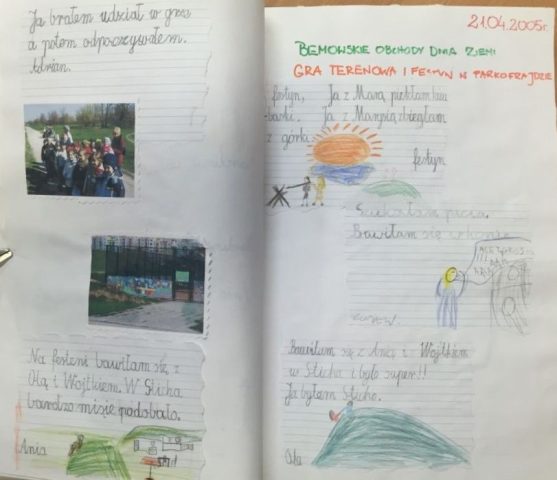 Ja brałem udział w grze
a potem odpoczywałem.
Adrian.
Na festeni bawiłam się z
Olą i Wojtkiem. W Sticha
bardzo misię podobało.
Ania
21.04.2005r.
BEMOWSKIE OBCHODY DNIA ZIEMI
GRA TERENOWA I FESTYN W PARKOFRAJDZIE
festyn,
Ja z
z górki.
festyn
Bawiłam się
Bawiłam się z Anią i Wojtkiem
w Sticha i było super!!
Ja byłem Sticho.
Ola